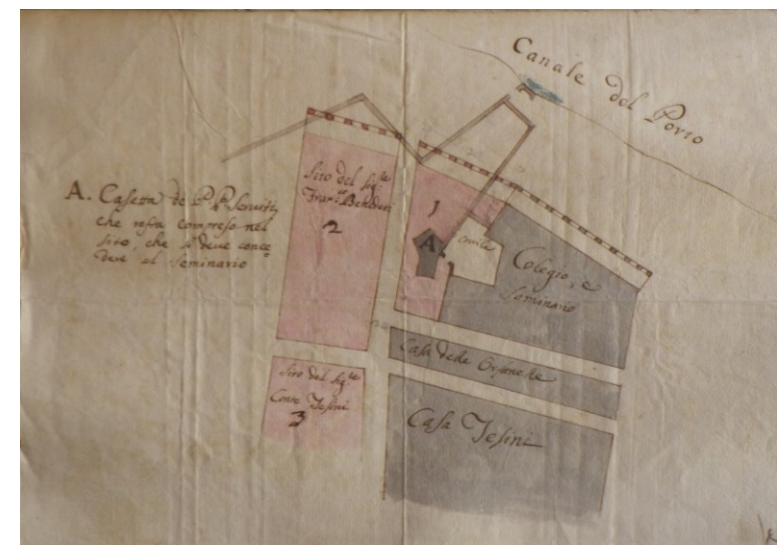 Canale del Porto
A. Casetta de P.P. Serviti,
che resta compreso nel
sito, che si deve conce
dere al Seminario
Sito del Sig.re
Fran.co Benederi
2
1
A
Cortile
Colegio, e
Seminario
Casa dele Orfanele
Sito del Sig.re
Conte Jesini
3
Casa Jesini